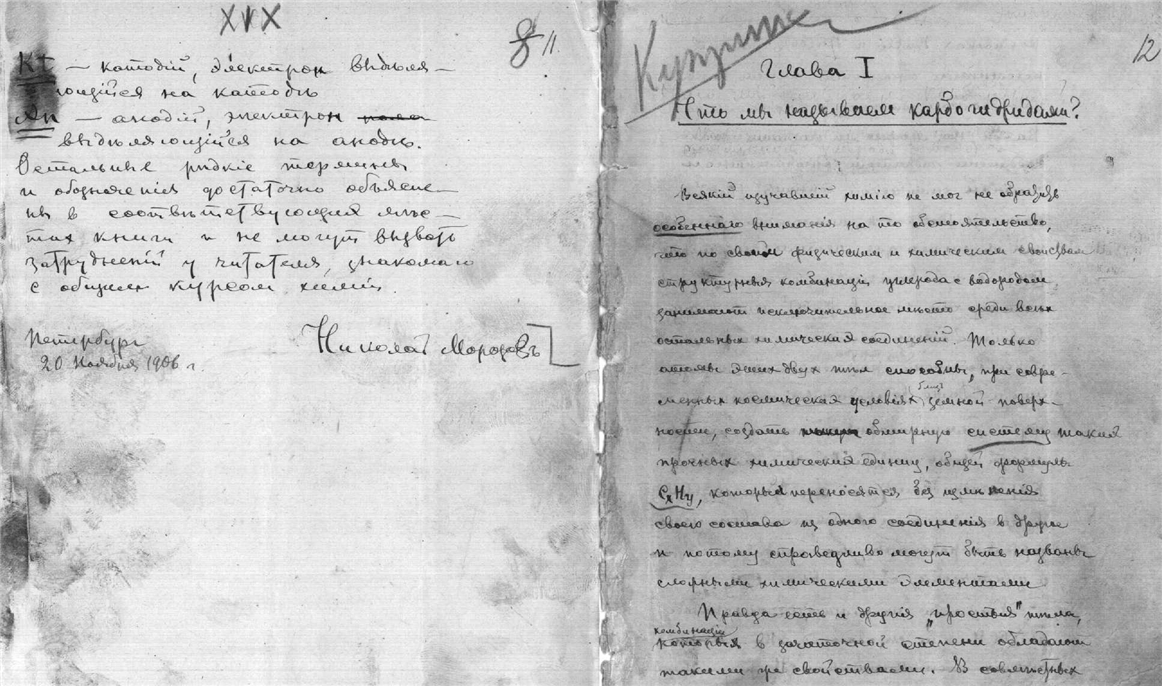 XIX
8 11.
Кт — катодій, электрон выдѣля-
ющійся на катодѣ
Ан — анодій, электрон
выдѣляющійся на анодѣ.
Остальные рѣдкіе термины
и обозначенія достаточно объясне-
ны в соотвѣтствующих мѣс-
тах книги и не могут вызвать
затрудненій у читателя, знакомаго
с общим курсом химіи.
Петербург
20 Ноября 1906 г.
Николай Морозовъ
12
Глава I
Что мы называем карбогидридами?
Всякій изучавшій химію не мог не обратить
особеннаго вниманія на то обстоятельство,
что по своим физическим и химическим свойствам
структурныя комбинаціи углерода с водородом
занимают исключительное мѣсто среди всѣх
остальных химических соединеній. Только
атомы этих двух тѣл способны, при совре-
менных космических условіях земной поверх-
ности, создать обширную систему таких
прочных химических единиц, общей формулы
CxHy, которыя переносятся без измѣненія
своего состава из одного соединенія в другое
и потому справедливо могут быть названы
сложными химическими элементами
Правда есть и другія „простыя" тѣла,
комбинаціи
которых в зачаточной степени обладают
такими же свойствами. В совмѣстных